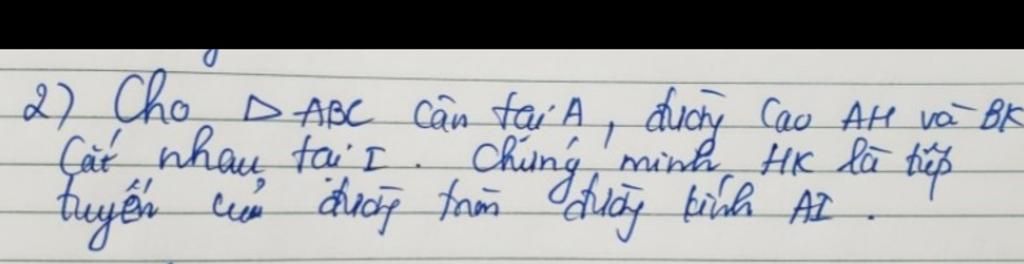 2) Cho △ ABC cân tại A, đường cao AH và BK
Cắt nhau tại I. Chứng minh HK là tiếp
tuyến của đường tròn đường kính AI.